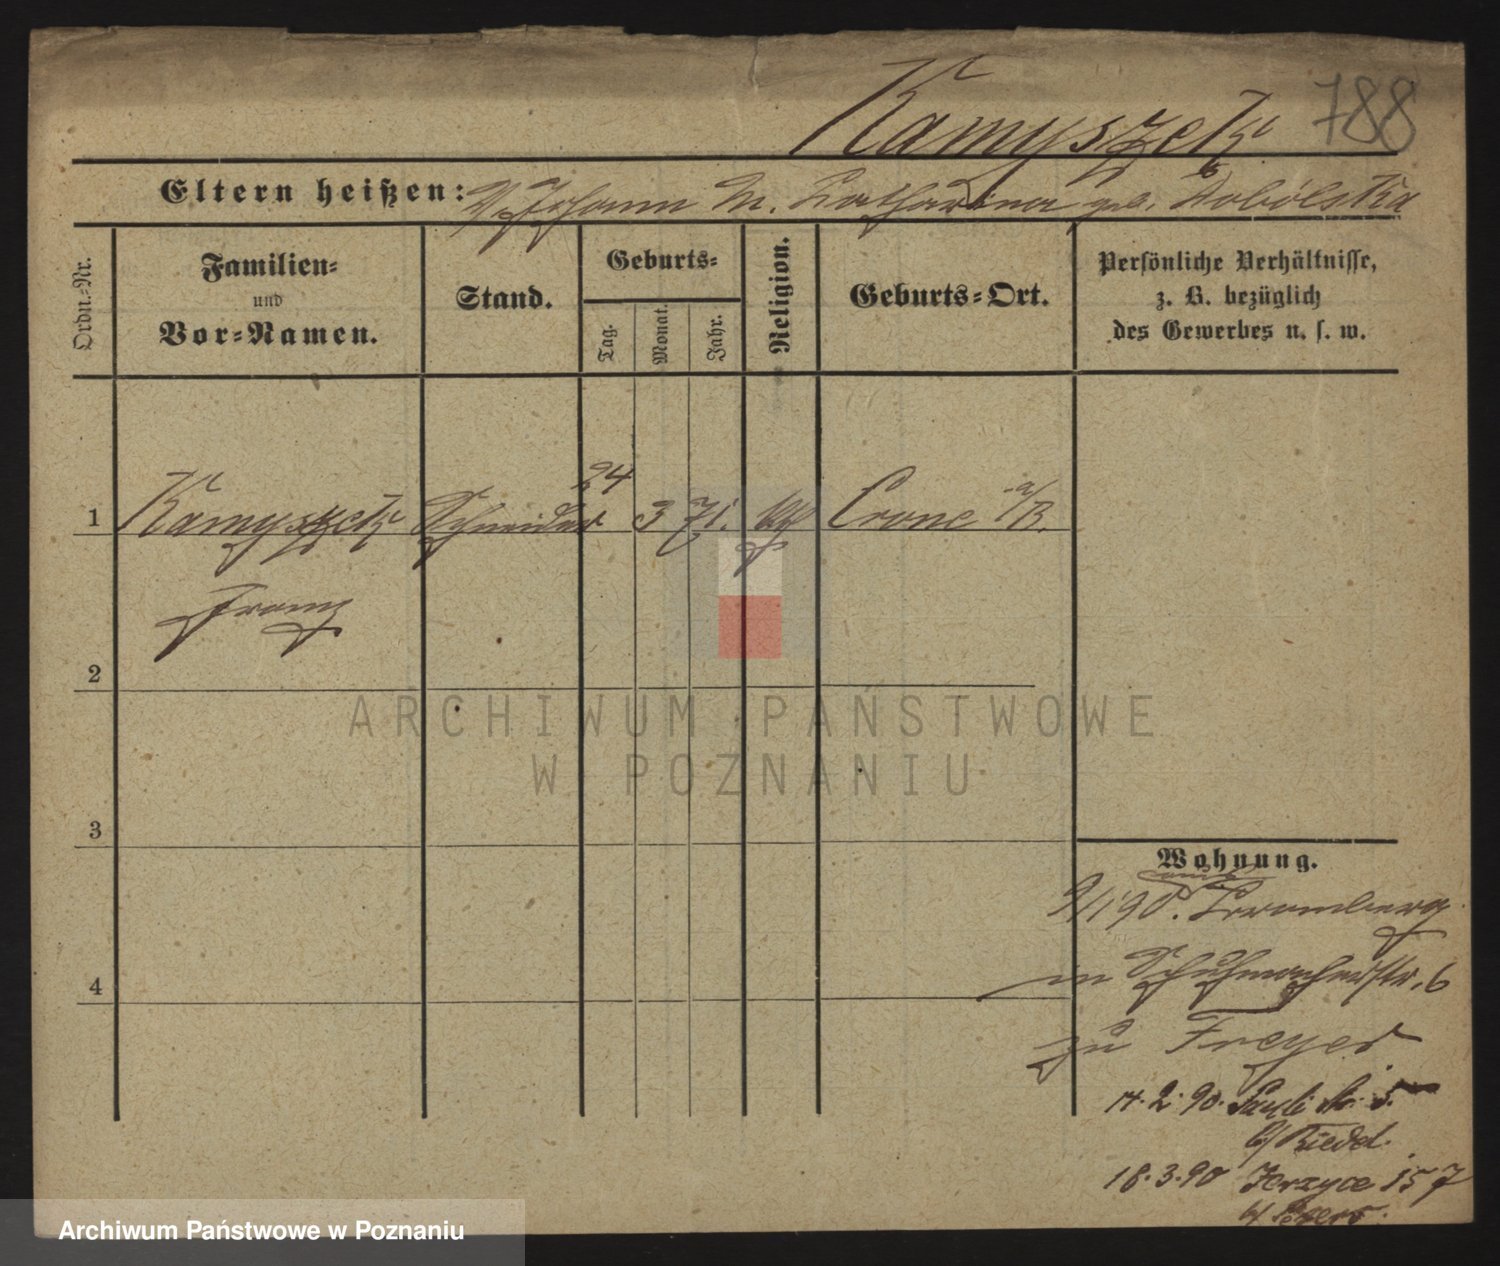 Kamyszek 788
Eltern heißen: V. Johann M. Catharina geb.
Ordn.-Nr.
Familien-
und
Vor-Namen.
Stand.
Geburts-
Tag.
Monat.
Jahr.
Religion.
Geburts-Ort.
Persönliche Verhältnisse,
z. B. bezüglich
des Gewerbes u. s. w.
1 Kamyszek Schneider 24 3 71. Crone a/B.
Franz
2
3
4
Wohnung.
9/1 90. Bromberg
Schuhmacherstr. 6
zu Freyer
14. 2. 90. Pauli 5.
b/ Riedel.
18. 3. 90 Jerzyce 157
b/
ARCHIWUM PAŃSTWOWE
W POZNANIU
Archiwum Państwowe w Poznaniu